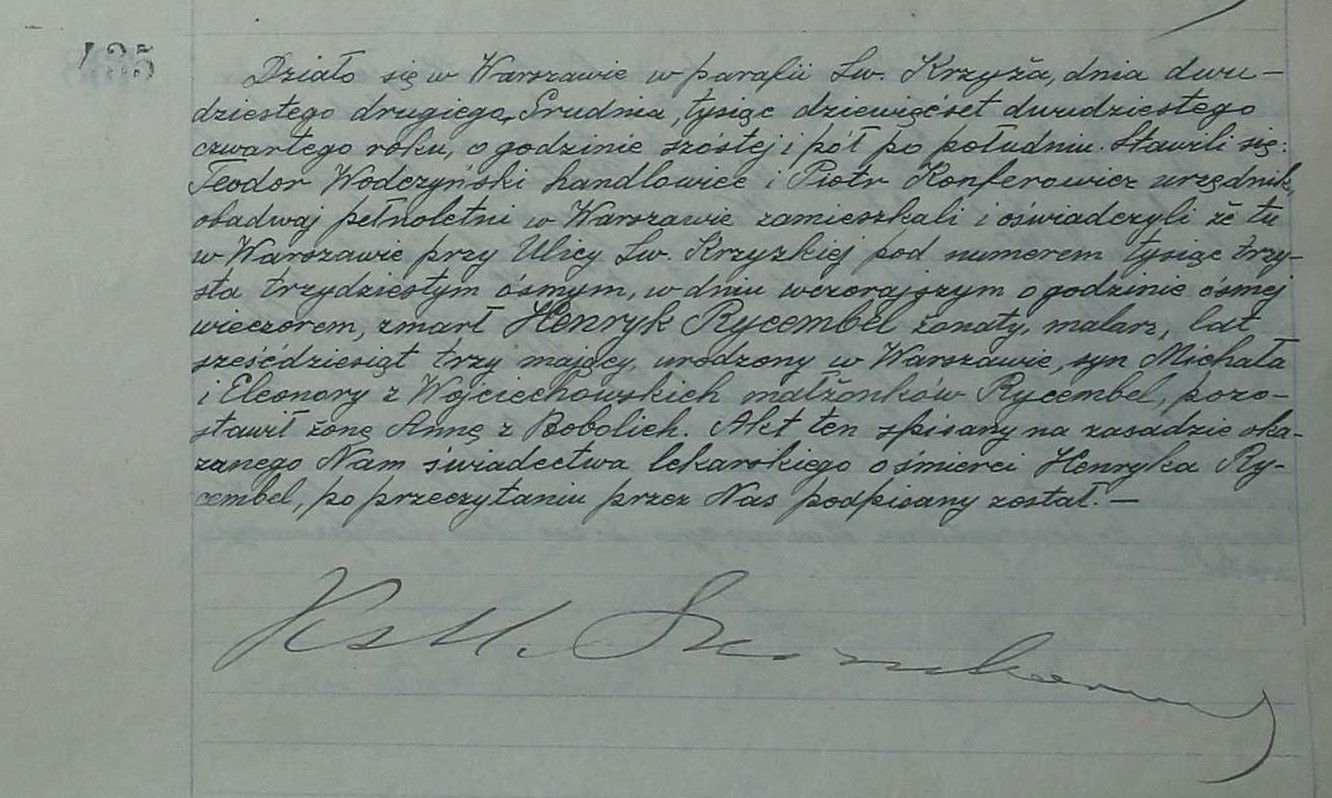 435
Działo się w Warszawie w parafii Św. Krzyża, dnia dwu-
dziestego drugiego, Grudnia, tysiąc dziewięćset dwudziestego
czwartego roku, o godzinie szóstej i pół po południu. Stawili się:
Teodor Wodczyński handlowiec i Piotr Konferowicz urzędnik,
obadwaj pełnoletni w Warszawie zamieszkali i oświadczyli że tu
w Warszawie przy Ulicy Św. Krzyzkiej pod numerem tysiąc trzy-
sta trzydziestym ósmym, w dniu wczorajszym o godzinie ósmej
wieczorem, zmarł Henryk Rycembel żonaty, malarz, lat
sześćdziesiąt trzy mający, urodzony w Warszawie, syn Michała
i Eleonory z Wojciechowskich małżonków Rycembel, pozo-
stawił żonę Annę z Bobolich. Akt ten spisany na zasadzie oka-
zanego Nam świadectwa lekarskiego o śmierci Henryka Ry-
cembel, po przeczytaniu przez Nas podpisany został.—